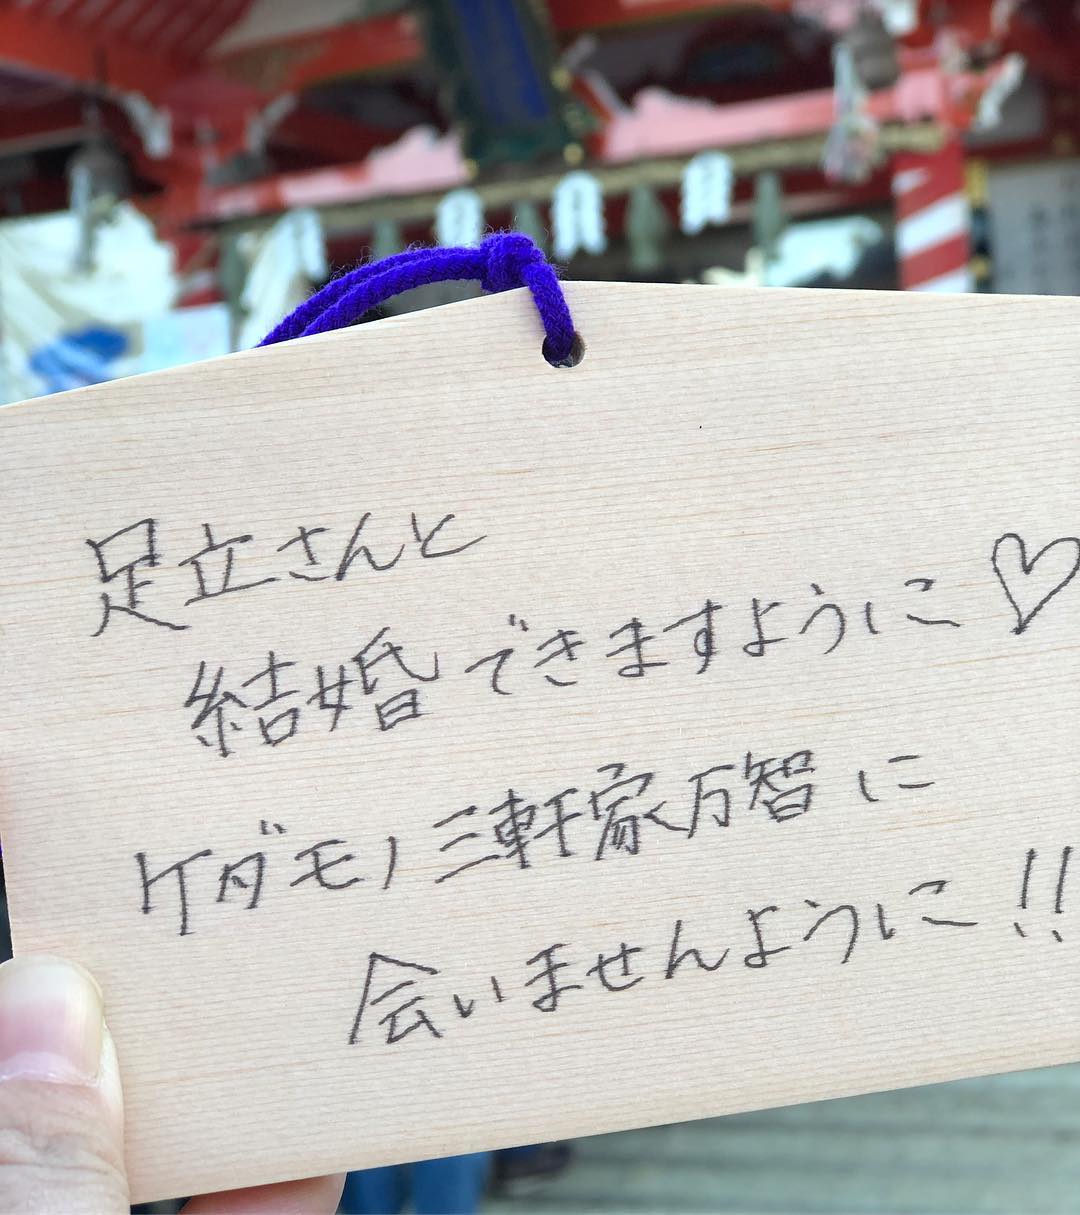 足立さんと
結婚できますように♡
ケダモノ三軒家万智に
会いませんように!!